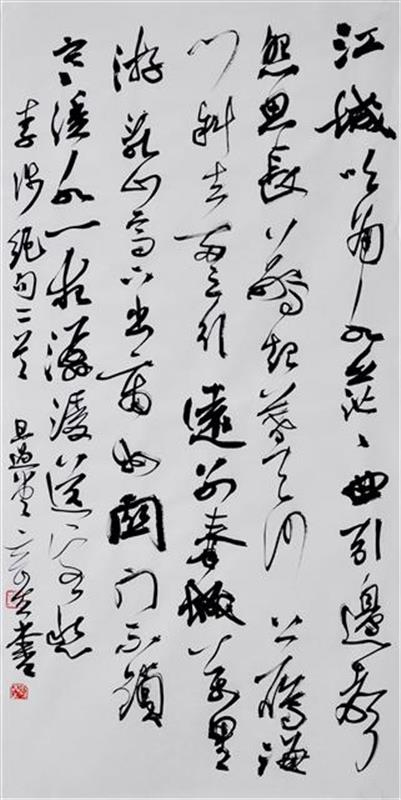 江城吹角水茫茫曲引邊聲
怨思長驚起暮天沙上雁海
門斜去两三行遠别秦城万里
游乱山高下出商州関门不鎖
寒溪水一夜潺湲送客愁
李涉絕句二首 書